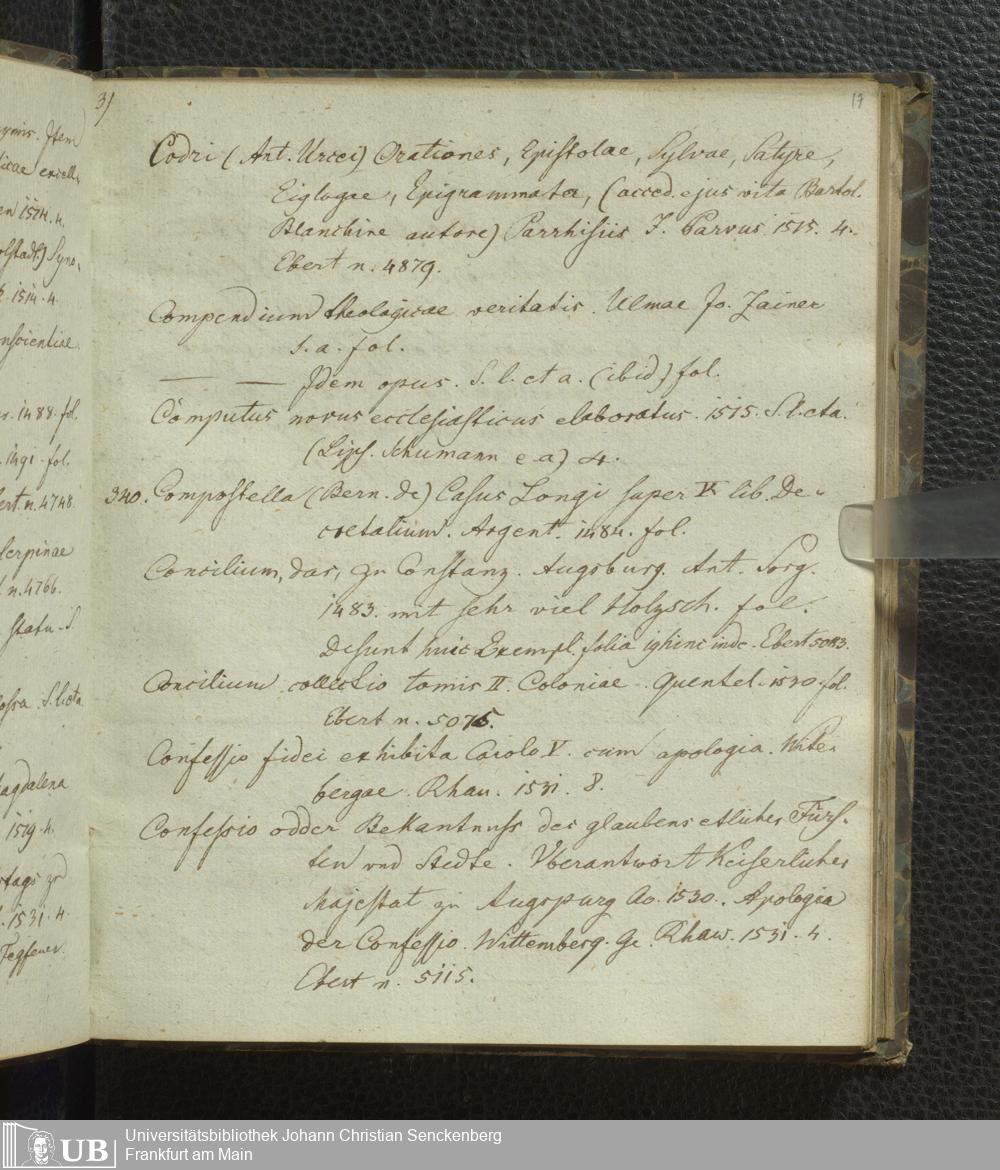 ymis. Item
icae excell.
en 1514. 4.
olstadt.) Syno,
1514. 4.
nscientiae
1488. fol.
1491. fol.
ert. n. 4748
Serpinae
n. 4766.
statu. S.
ossa. S. l. et a
agdalena
1519. 4.
stags zu
1531. 4.
Fegfeuer.
31
19
Codri (Ant. Urcei) Orationes, Epistolae, Sylvae, Satyre,
Eiglogae, Epigrammata, (acced. ejus vita Bartol.
Blanchine autore) Parrhisiis J. Parvus 1515. 4.
Ebert n. 4879.
Compendium theologicae veritatis. Ulmae Jo. Zainer
s. a. fol.
— — Idem opus. S. l. et a. (ibid) fol.
Computus novus ecclesiasticus elaboratus. 1515. S. l. et a.
(Lips. Schumann e. a) 4.
340. Compostella (Bern. de) Casus Longi super V lib. De-
cretalium. Argent. 1484. fol.
Concilium, das, zu Constanz. Augsburg. Ant. Sorg.
1483. mit sehr viel Holzsch. fol.
Desunt huic Exempl. folia hinc inde. Ebert 5083.
Concilium collectio tomis II. Coloniae. Quentel. 1530. fol.
Ebert n. 5075.
Confessio fidei exhibita Carolo V. cum apologia. Wite-
bergae. Rhau. 1531. 8.
Confessio odder Bekantnuss des glaubens etlicher Fürs-
ten und Stedte. Uberantwort Keiserlicher
Majestat zu Augspurg Ao. 1530. Apologia
der Confessio. Wittemberg. G. Rhaw. 1531. 4.
Ebert n. 5115.
UB
Universitätsbibliothek Johann Christian Senckenberg
Frankfurt am Main